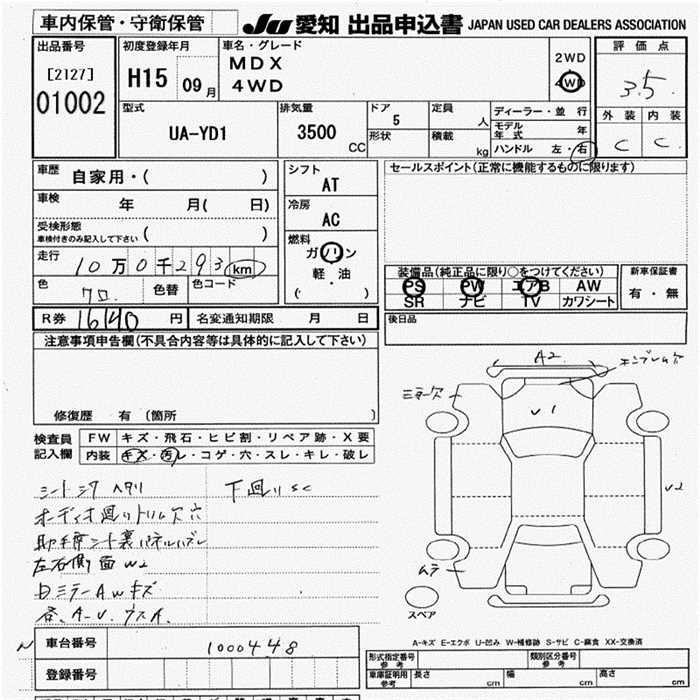 車内保管・守衛保管
JU 愛知 出品申込書 JAPAN USED CAR DEALERS ASSOCIATION
出品番号
[2127]
01002
初度登録年月
H15 09 月
車名・グレード
MDX
4WD
2WD
4WD
評価点
3.5
外装 内装
C C
型式
UA-YD1
排気量
3500 CC
ドア
5
形状
定員
人
積載
kg
ディーラー・並行
モデル年式 年
ハンドル 左・右
車歴 自家用・( )
車検 年 月( 日)
受検形態
車検付きのみ記入して下さい ( )
走行 10万0千293 km
色 クロ 色替 色コード
シフト
AT
冷房
AC
燃料
ガソリン
軽・油
( )
セールスポイント(正常に機能するものに限ります)
装備品(純正品に限り○をつけてください)
PS PW エアB AW
SR ナビ TV カワシート
新車保証書
有・無
R券 16140 円 名変通知期限 月 日
後日品
注意事項申告欄(不具合内容等は具体的に記入して下さい)
修復歴 有 (箇所 )
検査員記入欄
FW キズ・飛石・ヒビ割・リペア跡・X要
内装 キズ・汚レ・コゲ・穴・スレ・キレ・破レ
シートシワ ヘタリ 下廻りSC
オーディオ廻りトリム欠 穴
助手席シート裏パネルハズレ
左右側面 W2
ドミラーAWキズ
各、A-U.
A2
エンブレム欠
ミラー欠
V1
V2
ムラ
スペア
N
車台番号 1000448
登録番号
A-キズ E-エクボ U-凹み W-補修跡 S-サビ C-腐食 XX-交換済
形式指定番号 参考
類別区分番号 参考
車庫証明用 参考 長さ cm 幅 cm 高さ cm